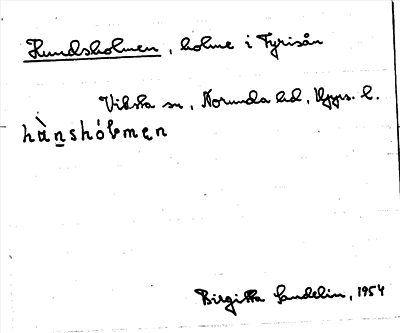 Hundsholmen, holme i Fyrisån
Viksta sn, Norunda hd, Upps. l.
hàn̲shólmen
Birgitta Sundelin, 1954